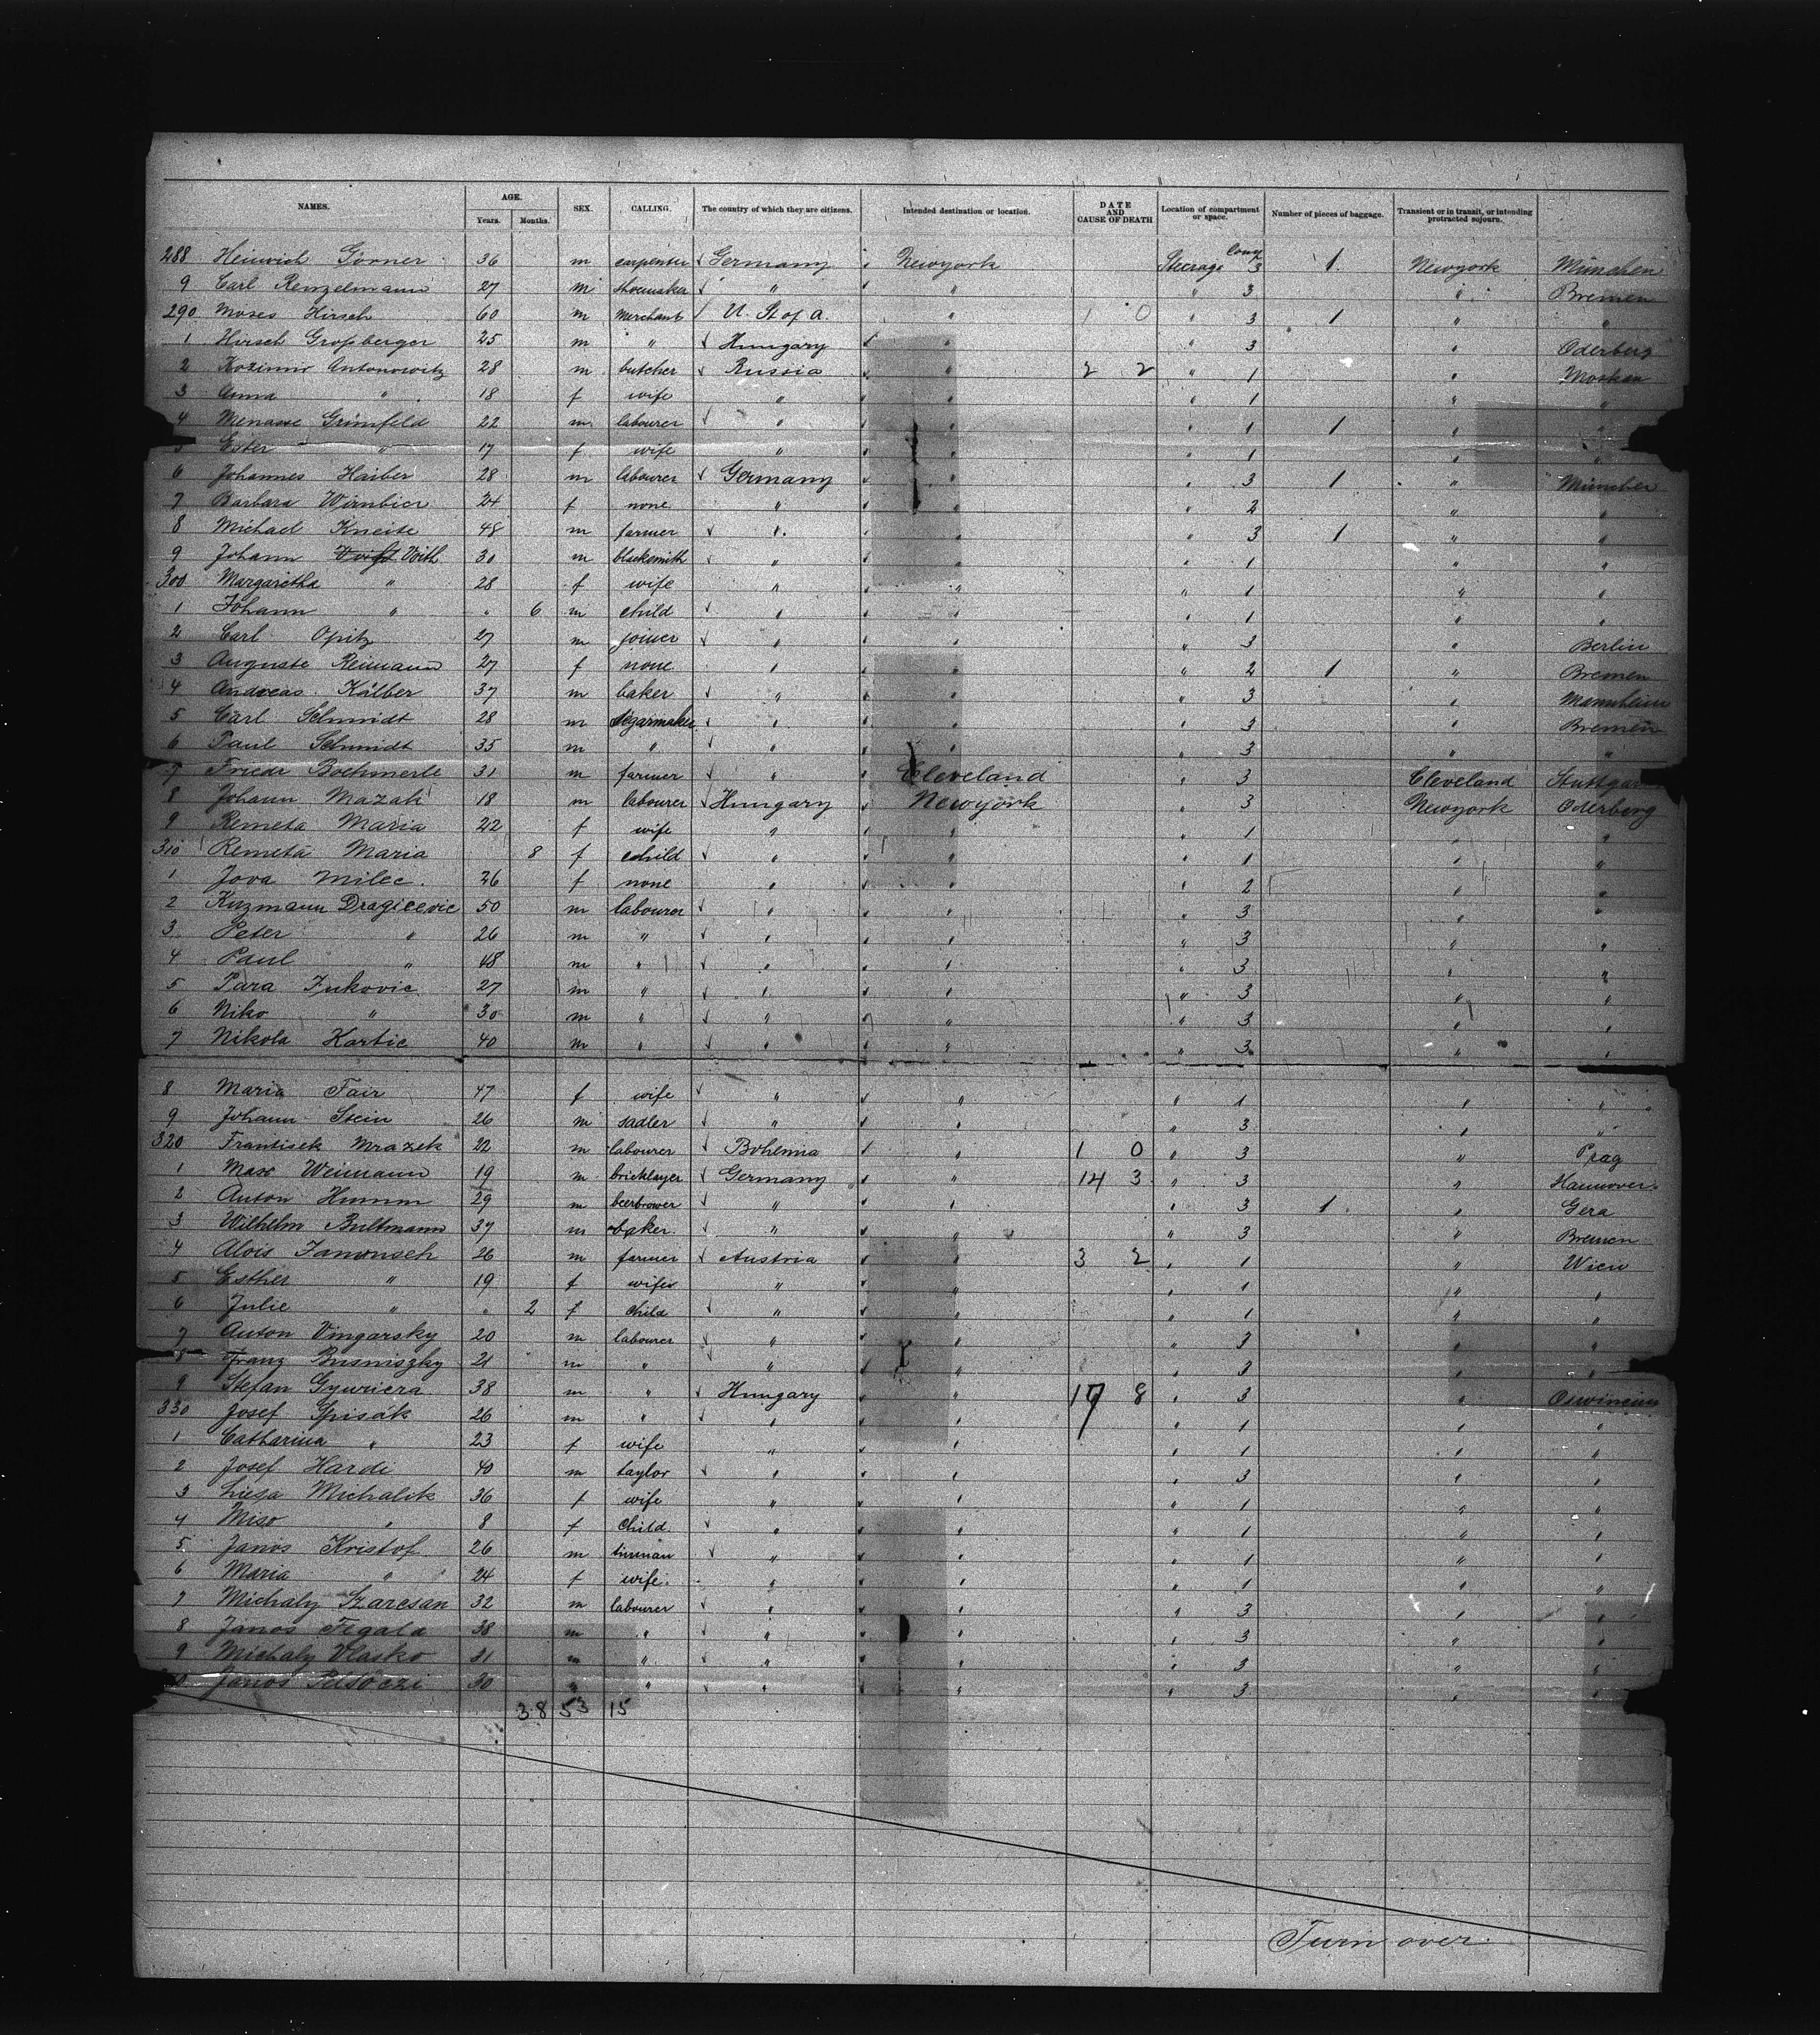 NAMES. AGE. Years. Months. SEX. CALLING. The country of which they are citizens. Intended destination or location. DATE AND CAUSE OF DEATH Location of compartment or space. Number of pieces of baggage. Transient or in transit, or intending protracted sojourn.
288 Heinrich Görner 36 m carpenter Germany Newyork Steerage Comp 3 1 Newyork München
9 Carl Renzelmann 27 m shoemaker " " " 3 " Bremen
290 Moses Hirsch 60 m merchant U. St of a. " 1 0 " 3 1 " "
1 Hirsch Großberger 25 m " Hungary " " 3 " Oderberg
2 Kozimir Antonowitz 28 m butcher Russia " 2 2 " 1 " Moskau
3 Anna " 18 f wife " " " 1 " "
4 Menasse Grünfeld 22 m labourer " " " 1 1 " "
5 Ester " 17 f wife " " " 1 " "
6 Johannes Haiber 28 m labourer Germany " " 3 1 " München
7 Barbara Wirnbier 24 f none " " " 2 " "
8 Michael Kneite 48 m farmer " " " 3 1 " "
9 Johann Voigt Voith 30 m blacksmith " " " 1 " "
300 Margaretha " 28 f wife " " " 1 " "
1 Johann " " 6 m child " " " 1 " "
2 Carl Opitz 27 m joiner " " " 3 " Berlin
3 Auguste Reimann 27 f none " " " 2 1 " Bremen
4 Andreas Kälber 37 m baker " " " 3 " Mannheim
5 Carl Schmidt 28 m segarmaker " " " 3 " Bremen
6 Paul Schmidt 35 m " " " " 3 " "
7 Friedr Boehmerle 31 m farmer " Cleveland " 3 Cleveland Stuttgart
8 Johann Mazak 18 m labourer Hungary Newyork " 3 Newyork Oderberg
9 Remeta Maria 22 f wife " " " 1 " "
310 Remeta Maria 8 f child " " " 1 " "
1 Jova Milec. 36 f none " " " 2 " "
2 Kuzmann Dragicevic 50 m labourer " " " 3 " "
3 Peter " 26 m " " " " 3 " "
4 Paul " 48 m " " " " 3 " "
5 Para Jukovic 27 m " " " " 3 " "
6 Niko " 30 m " " " " 3 " "
7 Nikola Kartic 40 m " " " " 3 " "
8 Maria Fair 47 f wife " " " 1 " "
9 Johann Stein 26 m sadler " " " 3 " "
320 Frantisek Mrazek 22 m labourer Bohemia " 1 0 " 3 " Prag
1 Max Weimann 19 m bricklayer Germany " 14 3 " 3 " Hannover
2 Anton Humm 29 m beerbrower " " " 3 1 " Gera
3 Wilhelm Bultmann 37 m baker " " " 3 " Bremen
4 Alois Janousch 26 m farmer Austria " 3 2 " 1 " Wien
5 Esther " 19 f wife " " " 1 " "
6 Julie " " 2 f child " " " 1 " "
7 Anton Vingarsky 20 m labourer " " " 3 " "
8 Franz Busniszky 21 m " " " " 3 " "
9 Stefan 38 m " Hungary " 17 8 " 3 " Oswincim
330 Josef Spisák 26 m " " " " 1 " "
1 Catharina " 23 f wife " " " 1 " "
2 Josef Hardi 40 m taylor " " " 3 " "
3 Luesa Michalik 36 f wife " " " 1 " "
4 Miso " 8 f child " " " 1 " "
5 Janos Kristof 26 m tinman " " " 1 " "
6 Maria " 24 f wife " " " 1 " "
7 Michaly Szarcsan 32 m labourer " " " 3 " "
8 Janos Figala 38 m " " " " 3 " "
9 Michaly Vlasko 31 m " " " " 3 " "
Janos 30 " " " " " 3 " "
38 53 15
Turn over